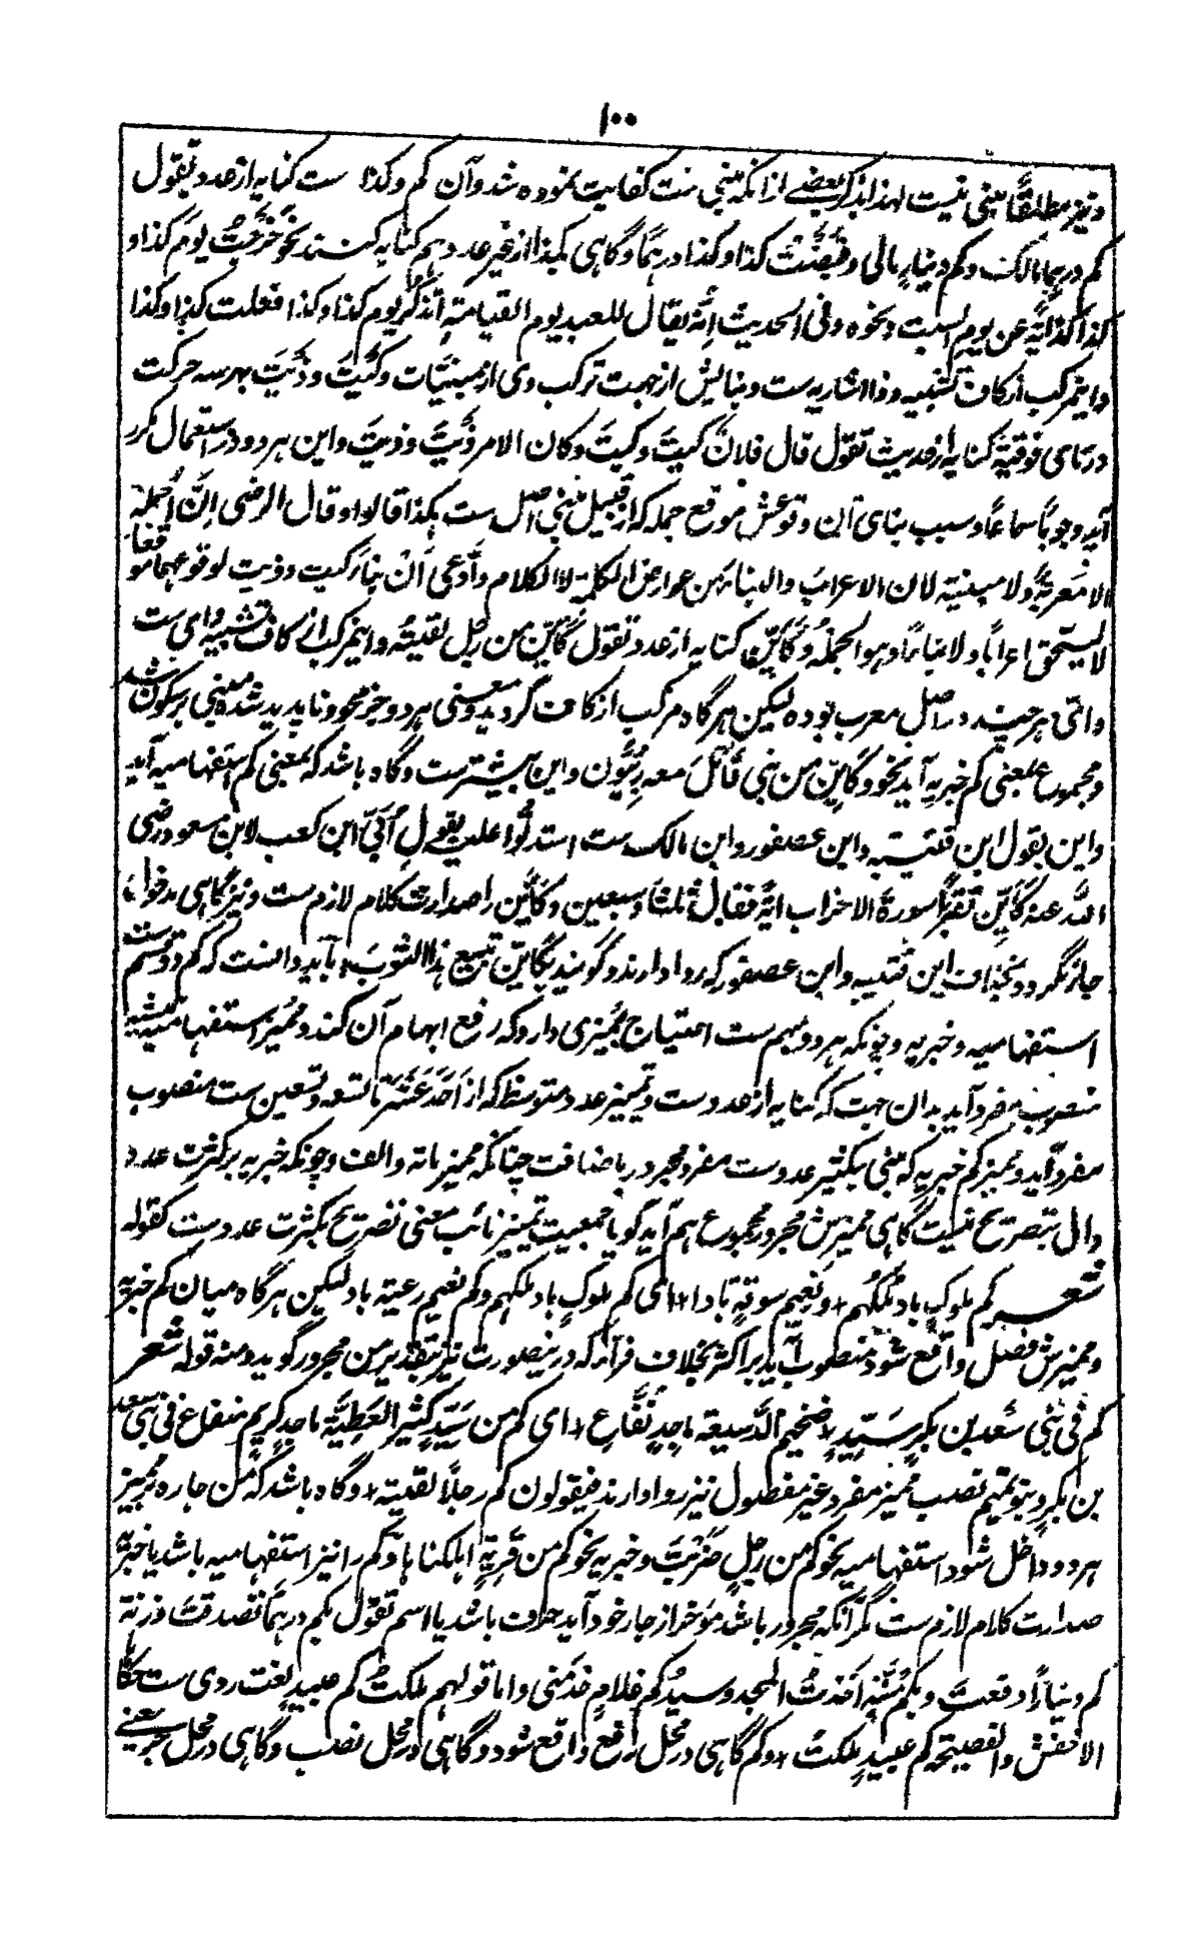 ١٠٠
و نیز مطلقًا مبنی نیست لهذا بذکر بعضے ازانکه مبنی ست کفایت نموده شد و آن کم و کذا ست کنایه از عدد تقول
کم درهمًا مالک و کم دینارٍ مالی و قبضتُ کذا و کذا درهمًا و گاهی بکذا از غیر عدد هم کنایه کنند نحو خرجتُ یومَ کذا و
کذا کنایةً عن یوم السبت و نحوه و فی الحدیث اِنّه یقال للعبد یوم القیامة أتذکر یوم کذا و کذا فعلت کذا و کذا
و این مرکب از کاف تشبیه و ذا اشاریه ست و بنایش از جهت ترکب وی از مبنیّات و کَیْتَ و ذَیْتَ بهر سه حرکت
در تای فوقیة کنایه از حدیث تقول قال فلانٌ کیتَ و کیتَ و کان الامر ذَیْتَ و ذیتَ و این هر دو در استعمال مکرر
آید وجوبًا سماعًا و سبب بنای آن وقوعش موقع جمله که از قبیل مبنی اصل ست هکذا قالوا و قال الرضی اِنّ الجملة
لا معربةٌ و لا مبنیة لان الاعرابَ و البناءَ من عوارض الکلمة لا الکلام و ادّعی اَنْ بناءَ کیت و ذیت لوقوعهما موقعًا
لا یستحق اعرابًا و لا بناءً و هو الجملةُ و کَأیّن کنایه از عدد تقول کأیّن من رجلٍ لقیتُه و این مرکب از کاف تشبیه و ای ست
و اَیّ هر چند در اصل معرب بوده لیکن هرگاه مرکب از کاف گردید و معنی هر دو جزء محو و ناپدید شده مبنی بر سکون شد
و مجموع بمعنی کم خبریه آید نحو و کأیّن من نبی قاتل معه ربّیّون و این بیشترست و گاه باشد که بمعنی کم استفهامیه آید
و این بقول ابن قتیبه و ابن عصفور و ابن مالک ست استدلّوا علیه بقول اُبَیّ ابن کعب لابن مسعود رضی
اللّه عنه کأیّن تقرأ سورة الاحزاب اٰیةً فقال ثلثًا و سبعین و کأیّن را صدارت کلام لازم ست و نیز گاهی مدخول
جار نگردد بخلاف ابن قتیبه و ابن عصفور که روا دارند و گویند بکأیّن تبیع هذا الثوبَ، باید دانست که کم دو قسم ست
استفهامیه و خبریه و چونکه هر دو مبهم ست احتیاج بممیزی دارد که رفع ابهام آن کند و ممیز استفهامیه همیشه
منصوب مفرد آید بدان جهت که کنایه از عددست و تمییز عدد متوسط که از اَحَدَ عَشَرَ تا تسعه و تسعین ست منصوب
مفرد آید و ممیز کم خبریه که مبنی بتکثیر عددست مفرد مجرور باضافت چنانکه ممیز مائه و الف و چونکه خبریه بر کثرت عدد
دال بتصریح نیست گاهی ممیزش مجرور مجموع هم آید گویا جمعیت تمییز نائب معنی تصریح بکثرت عددست کقوله
شعر کم ملوکٍ باد مُلکُهُم + و نعیم سوقةٍ بادا ++ ای کم ملوکٍ باد ملکهم و کم نعیم رعیته باد لیکن هرگاه میان کم خبریه
و ممیزش فصل واقع شود منصوب آید بر اکثر بخلاف فراء که درینصورت نیز بتقدیر من مجرور گوید و منه قوله شعر
کم فی بنی سَعد بن بکرٍ سَیّدٍ + ضخیم الدَّسیعة ماجدٍ نفّاعِ + ای کم من سیّدٍ کثیر العَطیّة ماجدٍ کریمٍ منفاعٍ فی بنی سعد
بن بکرٍ و بنو تمیم نصب ممیز مفرد غیر مفصول نیز روا دارند فیقولون کم رجلًا لقیته + و گاه باشد که من جاره بر ممیز
هر دو داخل شود استفهامیه نحو کم من رجلٍ ضربتَ و خبریه نحو کم من قریةٍ اهلکناها و کم را نیز استفهامیه باشد یا خبریه
صدارت کلام لازم ست مگر آنکه مجرور باشد مؤخر از جار خود آید حرف باشد یا اسم تقول بکم درهمًا تصدقتَ و زنةَ
کم دینارًا دفعتَ و بکم اخذتُ المجد و سیدُ کم غلامٍ خدَمَنی و اما قولهم ملکتُ کم عبیدٍ لغت ردی ست حکاها
الاخفش و الفصیحة کم عبیدٍ ملکتُ + و کم گاهی در محل رفع واقع شود و گاهی در محل نصب و گاهی در محل جر یعنی